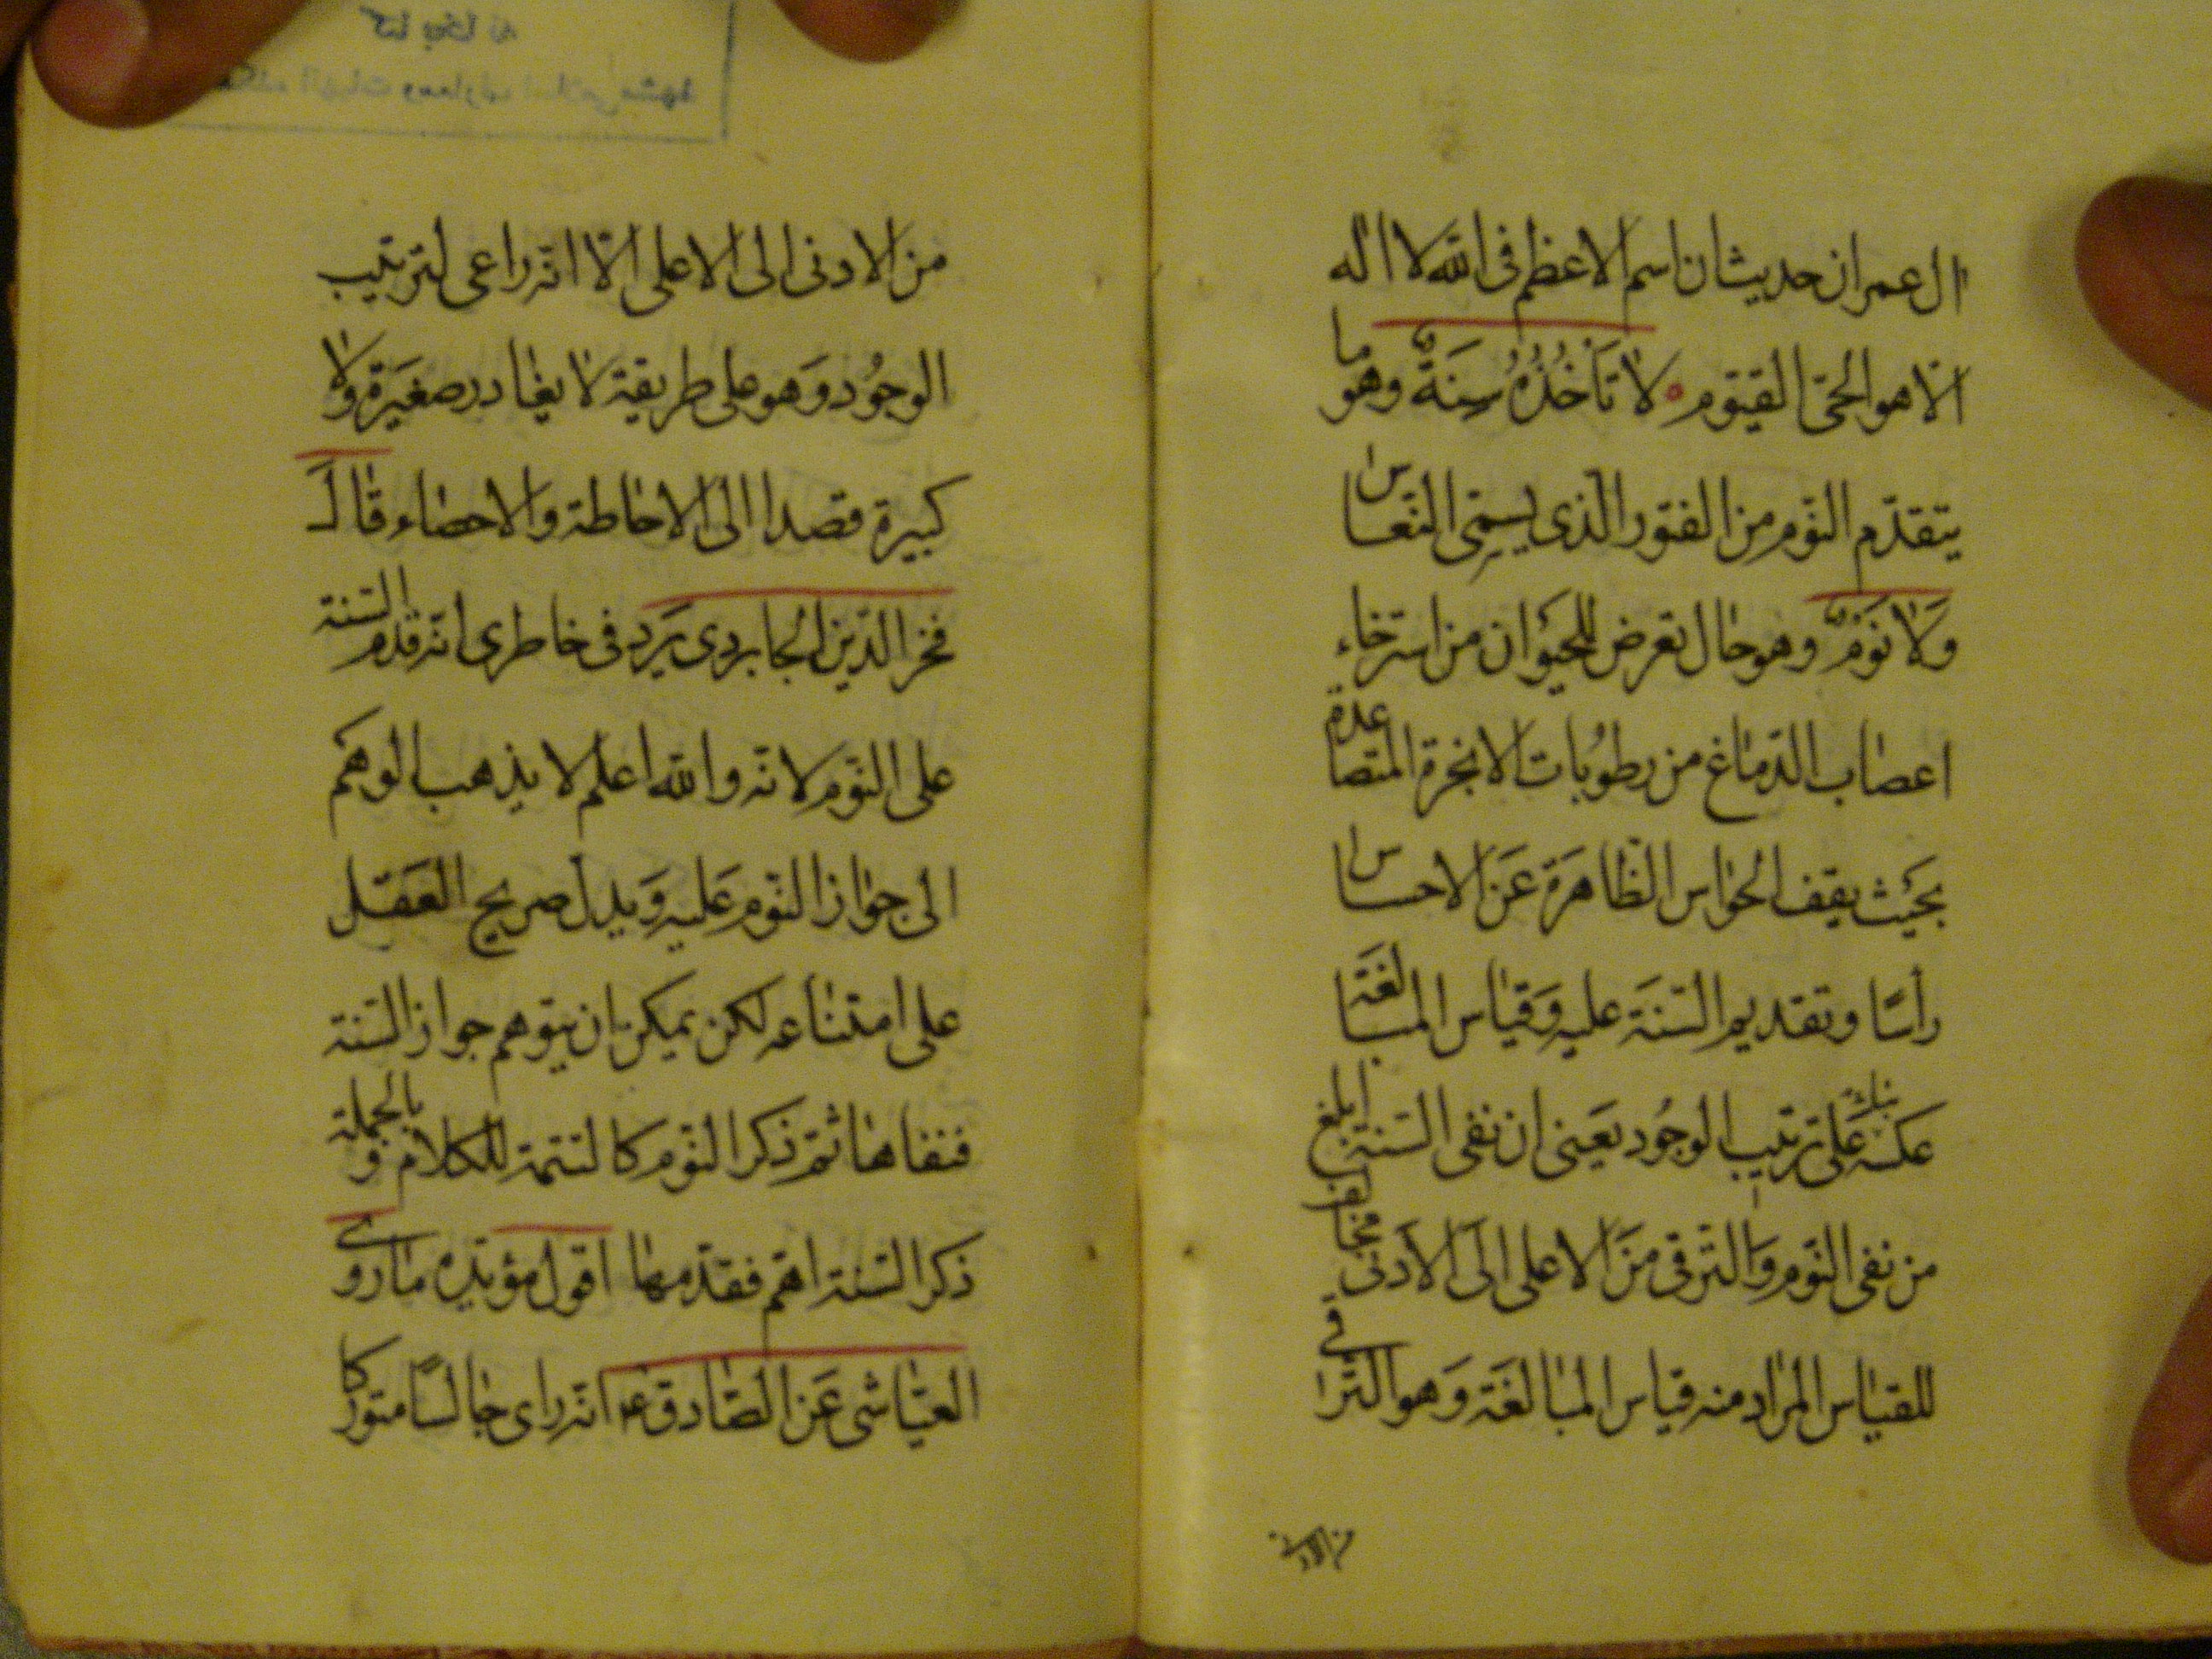 ال عمران حديث ان اسم الاعظم فى الله لا اله
الا هو الحىّ القيّوم لا تَأخُذُهُ سِنَةٌ وهو ما
يتقدّم النّوم من الفتور الّذى يسمّى النّعاس
وَلا نَوْمٌ وهو حال تعرض للحيَوان من استرخاء
اعصاب الدّماغ من رطوبات الابخرة المتصاعدة
بحيث يقف الحواس الظّاهرة عَن الاحساس
رأسًا وتقديم السّنَة عليه وَقياس المبالغَة
عكسه على ترتيب الوجُود يعَنى ان نفى السّنة ابلغ
من نفى النّوم وَالترقى منَ الاعلى الى الادنى مخالف
للقياس المراد منه قياس المبالغَة وَهو الترقى
من الادنى
من الادنى الى الاعلى الّا انّه راعى لترتيب
الوجُود وَهو على طريقة لا يغادر صغيَرة ولا
كبيرة قصدا الى الاحاطة والاحصاء قال
فخر الدّين الجابردى يَرد فى خاطرى انّه قدم السّنة
على النّوم لانّه والله اعلم لا يذهب الوهَم
الى جواز النّوم عَليه وَيدل صريح العَقل
على امتناعه لكن يمكن ان يتوهم جواز السّنة
فنفاها ثمّ ذكر النّوم كالتتمة للكلام وبالجملة
ذكر السّنة اهمّ فقدّمها اقول مؤيّده ما روى
العيّاشى عَن الصّادق ع انّه راى جالسًا متوركا
كتابخانه